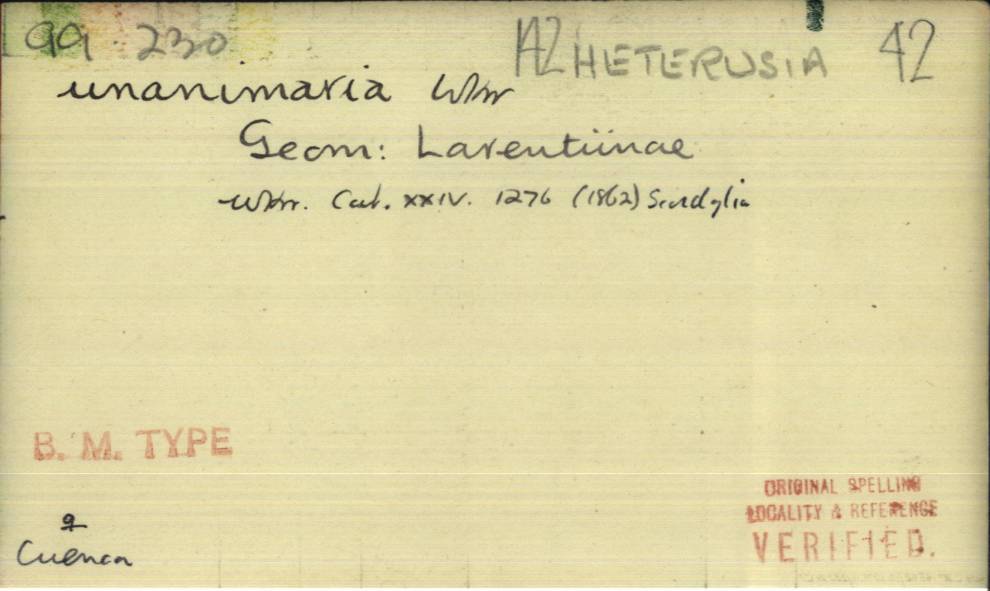 99 230 142 HETERUSIA 42
unanimaria Wkr
Geom: Larentiinae
Wkr. Cat. XXIV. 1276 (1862) Scordylia
B. M. TYPE
ORIGINAL SPELLING
LOCALITY & REFERENCE
VERIFIED.
♀
Cuenca